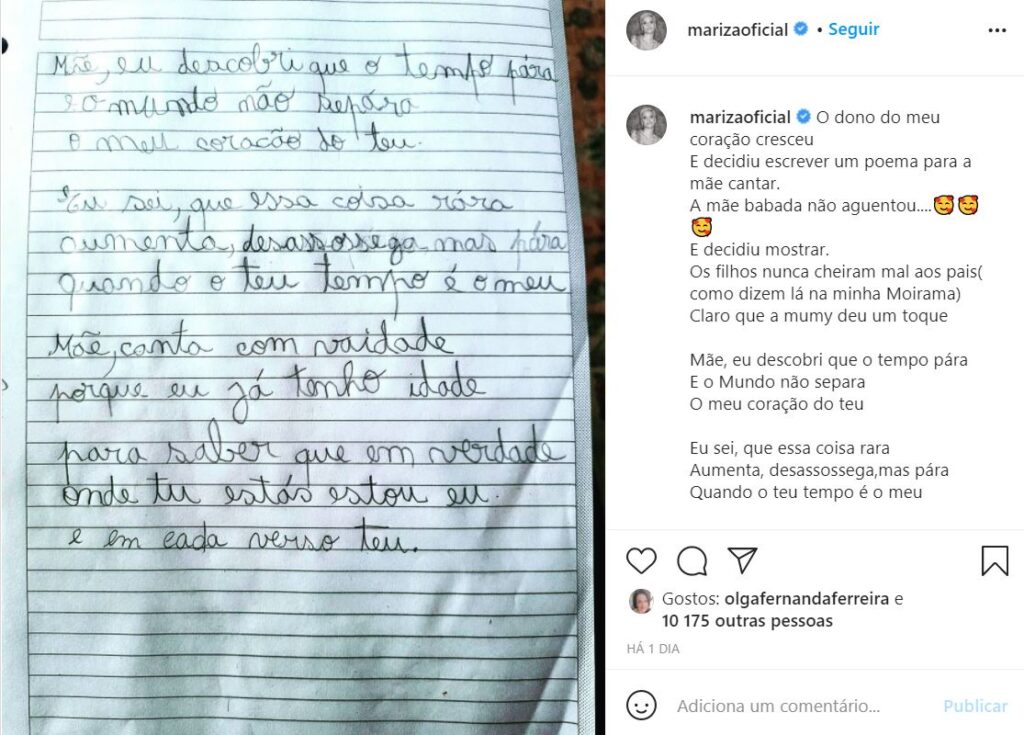 Mãe, eu descobri que o tempo pára
e o mundo não sepára
o meu coracão do teu.
Eu sei, que essa coisa rára
aumenta, desassossega, mas pára
quando o teu tempo é o meu
Mãe, canta com vaidade
porque eu já tenho idade
para saber que em verdade
onde tu estás estou eu.
e em cada verso teu.
marizaoficial • Seguir
marizaoficial O dono do meu
coração cresceu
E decidiu escrever um poema para a
mãe cantar.
A mãe babada não aguentou....🥰🥰
🥰
E decidiu mostrar.
Os filhos nunca cheiram mal aos pais(
como dizem lá na minha Moirama)
Claro que a mumy deu um toque
Mãe, eu descobri que o tempo pára
E o Mundo não separa
O meu coração do teu
Eu sei, que essa coisa rara
Aumenta, desassossega,mas pára
Quando o teu tempo é o meu
Gostos: olgafernandaferreira e
10 175 outras pessoas
HÁ 1 DIA
Adiciona um comentário... Publicar